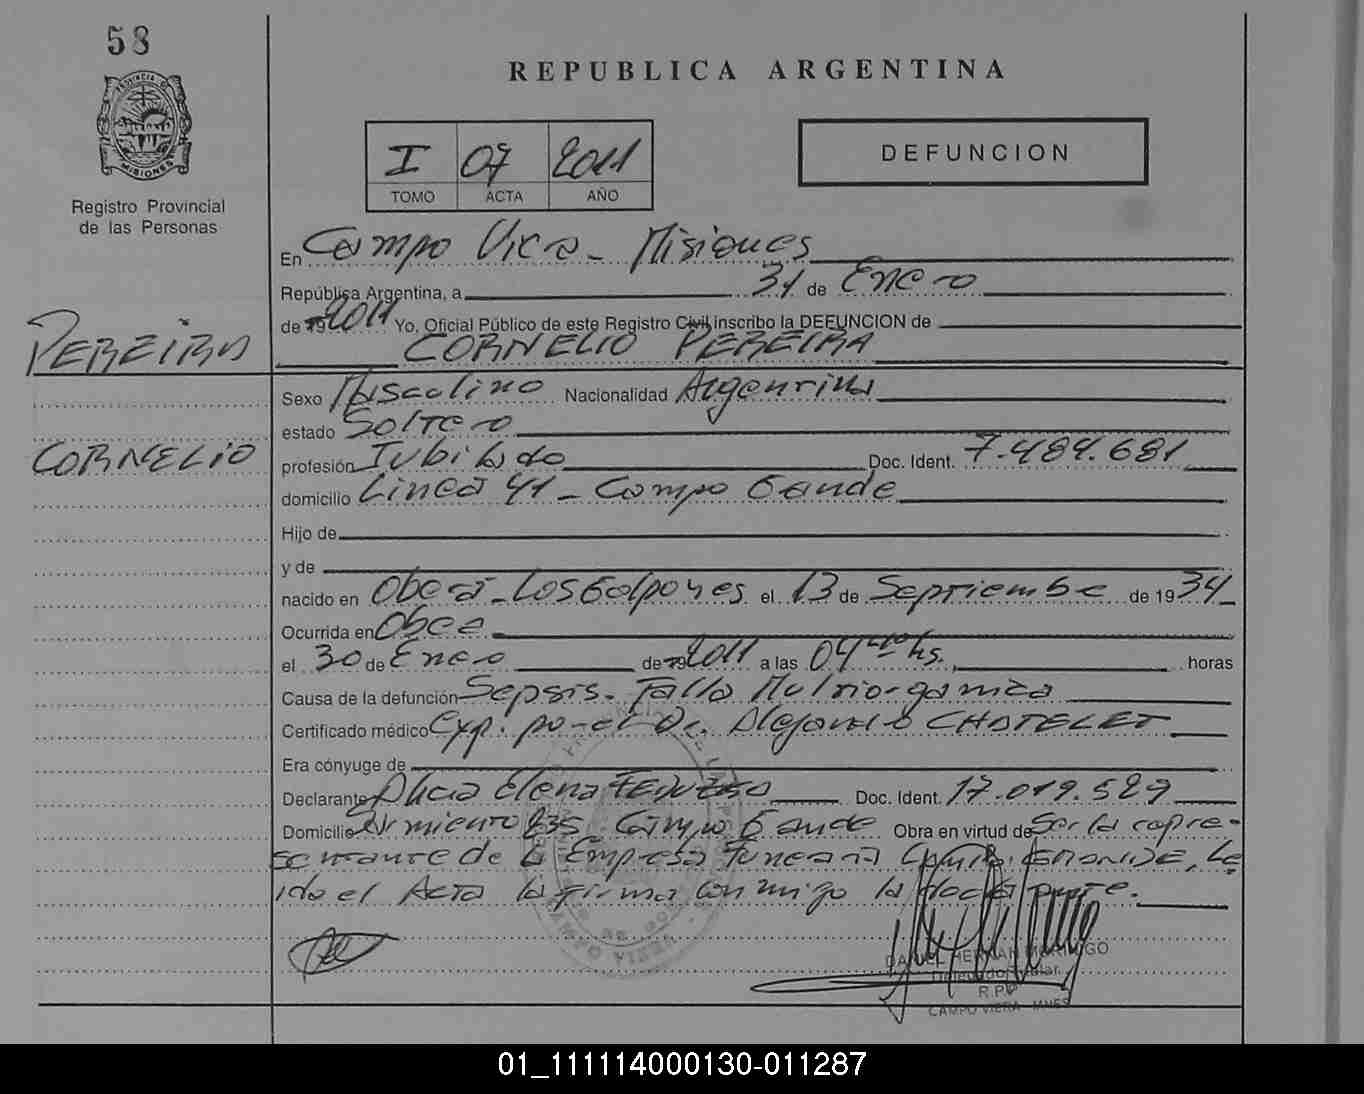 58
REPUBLICA ARGENTINA
PROVINCIA D
MISIONES
I 07 2011
TOMO ACTA AÑO
DEFUNCION
Registro Provincial
de las Personas
En Campo Viera - Misiones
República Argentina, a 31 de Enero
de 19 2011 Yo, Oficial Público de este Registro Civil inscribo la DEFUNCION de
PEREIRA CORNELIO PEREIRA
Sexo Masculino Nacionalidad Argentina
estado Soltero
CORNELIO profesión Jubilado Doc. Ident. 7.484.681
domicilio Linea 41 - Campo Gande
Hijo de
y de
nacido en Obera - Los Galpones el 13 de Septiembre de 19 34
Ocurrida en Obera
el 30 de Enero de 19 2011 a las 04 hs. horas
Causa de la defunción Sepsis - Falla Multiorganica
Certificado médico Exp. por el Dr. Alejandro CHATELET
Era cónyuge de
Declarante Alicia Elena Doc. Ident. 17.019.529
Domicilio Sarmiento 835 Campo Gande Obra en virtud de Ser la repre-
sentante de la Empresa Funeraria GRANDE, Le
ido el Acta la firma conmigo la parte.
DANIEL HERNAN MORINIGO
Delegado Titular
R.P.P
CAMPO VIERA - MNES
01_111114000130-011287